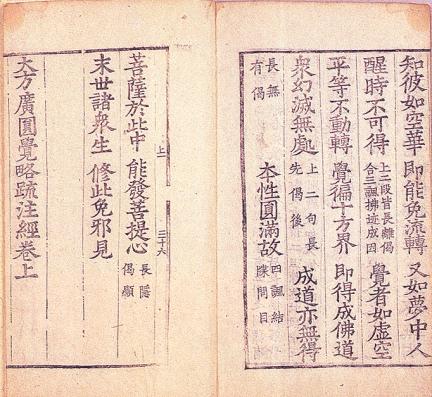 知彼如空華 即能免流轉 又如夢中人
醒時不可得 上三段皆長離偈 合三諷拂迹成因 覺者如虛空
平等不動轉 覺徧十方界 即得成佛道
衆幻滅無處 上二句長 先偈後 成道亦無得
無偈 長有 本性圓滿故 四諷結 陳問目
上 三十六
菩薩於此中 能發菩提心 長隱 偈顯
末世諸衆生 修此免邪見
大方廣圓覺略疏注經卷上